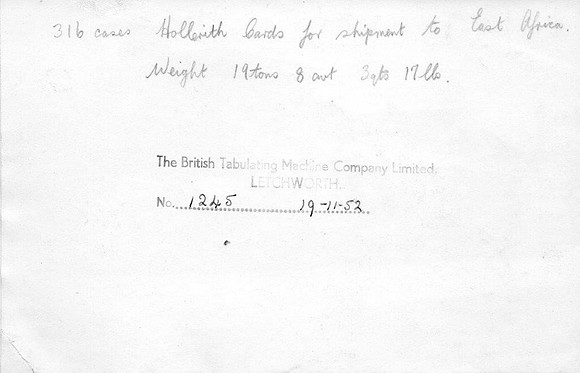 316 cases Hollerith Cards for shipment to East Africa.
Weight 19tons 8 cwt 3qts 17lbs.
The British Tabulating Machine Company Limited,
LETCHWORTH.
No. 1245 19-11-52